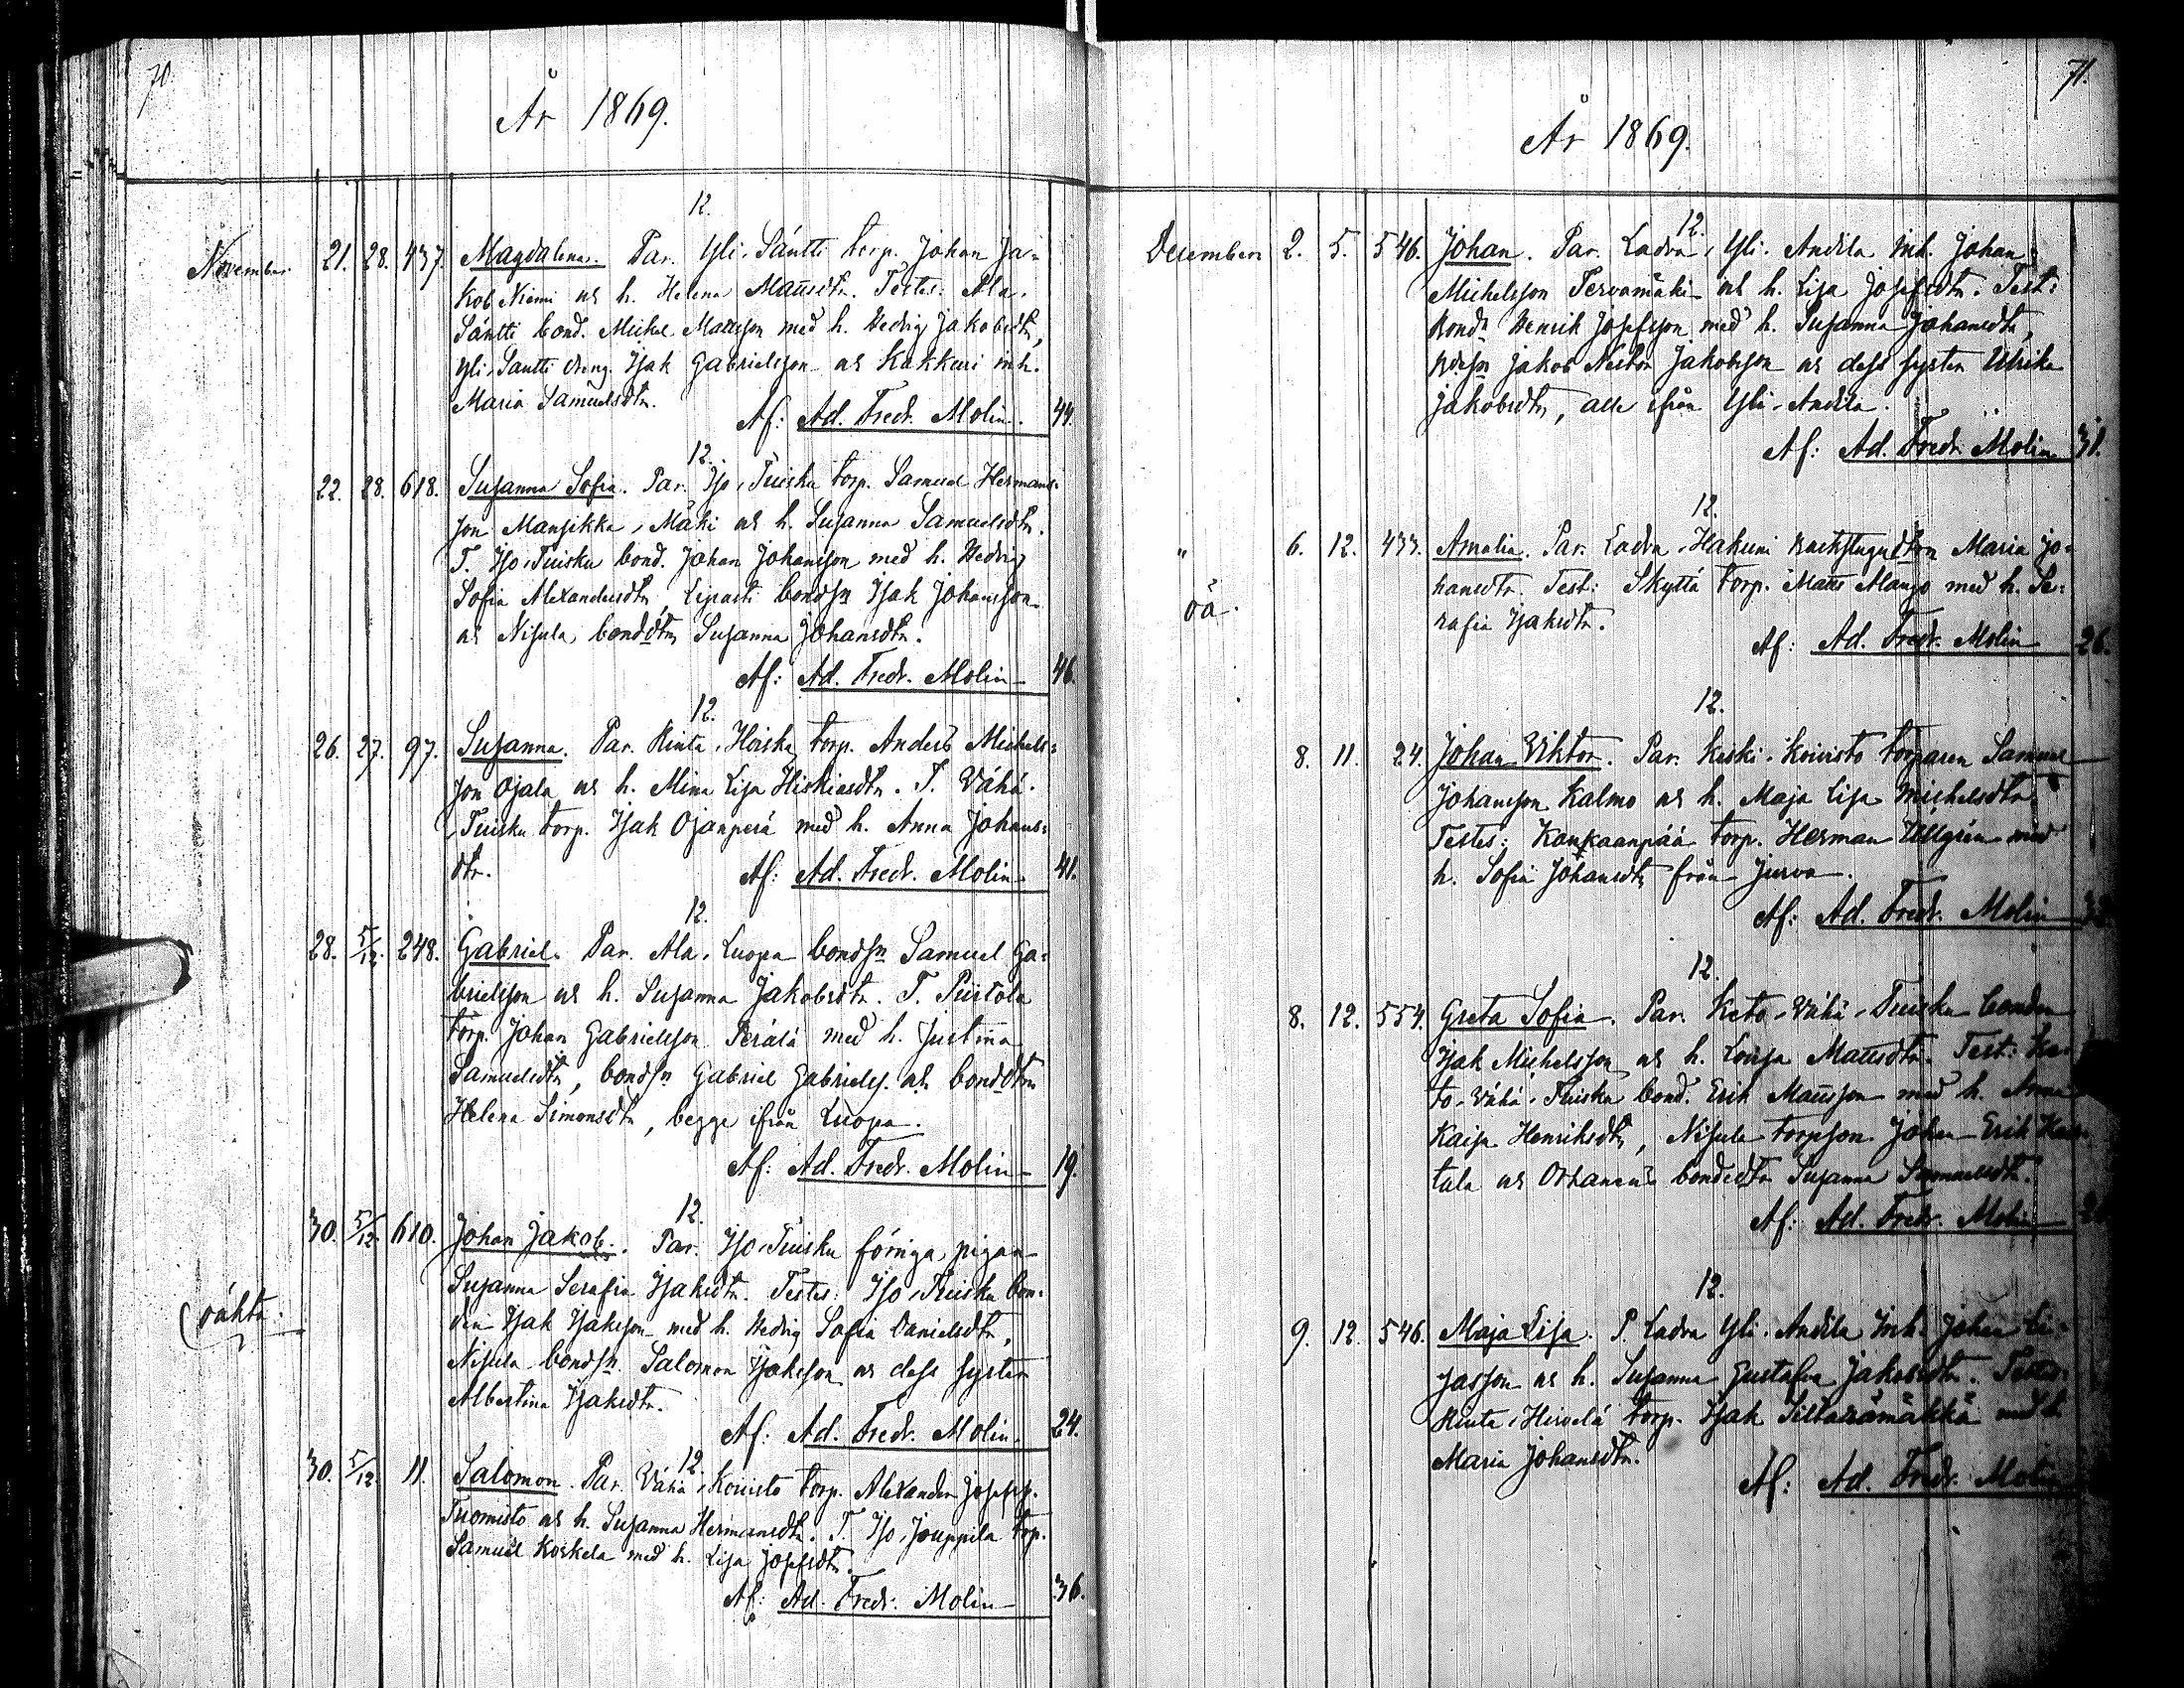 70.
År 1869.
12.
November 21. 28. 437. Magdalena. Par. Yli-Säntti torp. Johan Ja-
kob Niemi ok h. Helena Mattsdtr. Testes: Ala-
Säntti bond. Mickel Mattsson med h. Hedvig Jakobsdtr,
Yli-Santti dreng. Isak Gabrielsson ok Kakkuri inh.
Maria Samuelsdtr.
Af: Ad. Fredr. Molin. 44.
12.
22. 28. 618. Susanna Sofia. Par. Iso-Tuisku torp. Samuel Hermans-
son Mansikka-Mäki ok h. Susanna Samuelsdtr.
T. Iso-Tuisku bond. Johan Johansson med h. Hedvig
Sofia Alexandersdtr, Lipasti bondsn Isak Johansson
ok Nisula bonddtr, Susanna Johansdtr.
Af: Ad. Fredr. Molin 46.
12.
26. 27. 97. Susanna. Par. Rinta-Hoiska torp. Anders Michels-
son Ojala ok h. Mina Lisa Hiskiasdtr. T. Vähä-
Tuisku torp. Isak Ojanperä med h. Anna Johans-
dtr. Af: Ad. Fredr. Molin. 41.
12.
28. 5/12. 248. Gabriel. Par. Ala-Luopa bondsn Samuel Ga-
brielsson ok h. Susanna Jakobsdtr. T. Piirtola
torp. Johan Gabrielsson Perälä med h. Justina
Samuelsdtr, bondsn Gabriel Gabrielss. ok bonddtr
Helena Simonsdtr, begge ifrån Luopa.
Af: Ad. Fredr. Molin 19.
12.
30. 5/12. 610. Johan Jakob. Par. Iso-Tuisku förriga pigan
Susanna Serafia Isaksdtr. Testes: Iso-Tuisku bon-
(oäkta. den Isak Isaksson med h. Hedvig Sofia Danielsdtr,
Nisula bondsn. Salomon Isaksson ok dess syster
Albertina Isaksdtr.
Af: Ad. Fredr. Molin. 24.
12.
30. 5/12. 11. Salomon. Par. Vähä-Koivisto torp. Alexander Josefss.
Tuomisto ok h. Susanna Hermansdtr. T. Iso-Jouppila torp.
Samuel Koskela med h. Lisa Josefsdtr.
Af: Ad. Fredr. Molin 36.
71.
År 1869.
12.
December 2. 5. 546. Johan. Par. Ladva-Yli-Andila inh. Johan
Michelsson Tervamäki ok h. Lisa Josefsdtr. Test:
Bond. Henrik Josefsson med h. Susanna Johansdtr,
Bdesn Jakob Nestor Jakobsson ok dess syster Ulrika
Jakobsdtr, alle ifrån Yli-Andila.
Af: Ad. Fredr. Molin 31.
12.
" 6. 12. 433. Amalia. Par. Ladva-Hakuni Backstugudtrn Maria Jo-
oä. hansdtr. Test: Skyttä torp. Matts Alango med h. Se-
rafia Isaksdtr.
Af: Ad. Fredr. Molin 26.
12.
8. 11. 24. Johan Viktor. Par. Keski-Koivisto torparen Samuel
Johansson Kalmo ok h. Maja Lisa Michelsdtr.
Testes: Kankaanpää torp. Herman Ullgrén med
h. Sofia Johansdtr från Jurva.
Af: Ad. Fredr. Molin
12.
8. 12. 554. Greta Sofia. Par. Keto-Vähä-Tuisku bonden
Isak Michelsson ok h. Lovisa Mattsdtr. Test: Ke-
to-Vähä-Tuisku bond. Erik Mattsson med h. Anna
Kaisa Henriksdtr, Nisula torpson Johan Erik
tala ok bondedtr Susanna Samuelsdtr.
Af: Ad. Fredr. Molin
12.
9. 12. 546. Maja Lisa. P. Ladva Yli-Andila Inh. Johan
jasson ok h. Susanna Gustafva Jakobsdtr. Testes:
Rinta-Hirvelä torp. Isak Siltarämäkkä med h.
Maria Johansdtr.
Af: Ad. Fredr. Molin